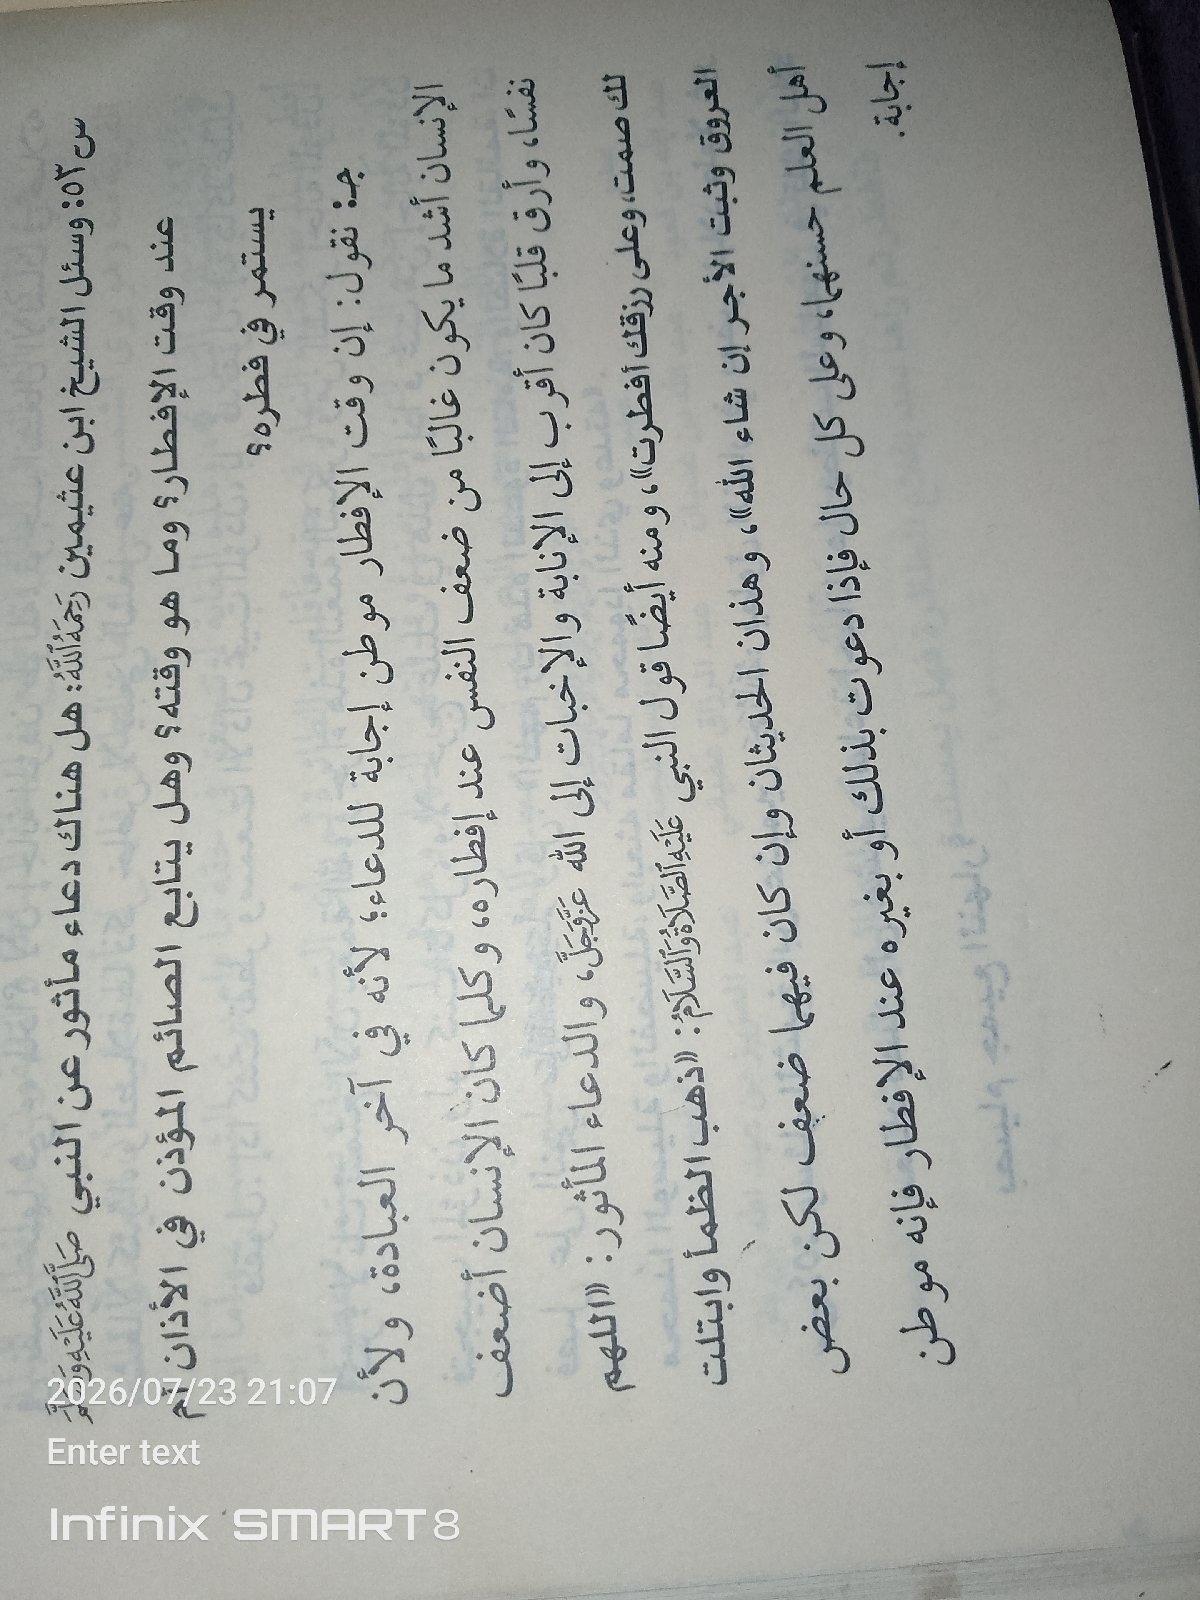 س٥٣: وسئل الشيخ ابن عثيمين رَحِمَهُ اللَّهُ: هل هناك دعاء مأثور عن النبي صَلَّى اللَّهُ عَلَيْهِ وَسَلَّمَ
عند وقت الإفطار؟ وما هو وقته؟ وهل يتابع الصائم المؤذن في الأذان أم
يستمر في فطره؟
جـ: نقول: إن وقت الإفطار موطن إجابة للدعاء؛ لأنه في آخر العبادة، ولأن
الإنسان أشد ما يكون غالبًا من ضعف النفس عند إفطاره، وكلما كان الإنسان أضعف
نفسًا، وأرق قلبًا كان أقرب إلى الإنابة والإخبات إلى الله عَزَّوَجَلَّ، والدعاء المأثور: «اللهم
لك صمت، وعلى رزقك أفطرت»، ومنه أيضًا قول النبي عَلَيْهِ الصَّلَاةُ وَالسَّلَامُ: «ذهب الظمأ وابتلت
العروق وثبت الأجر إن شاء الله»، وهذان الحديثان وإن كان فيهما ضعف لكن بعض
أهل العلم حسنهما، وعلى كل حال فإذا دعوت بذلك أو بغيره عند الإفطار فإنه موطن
إجابة.
2026/07/23 21:07
Enter text
Infinix SMART 8